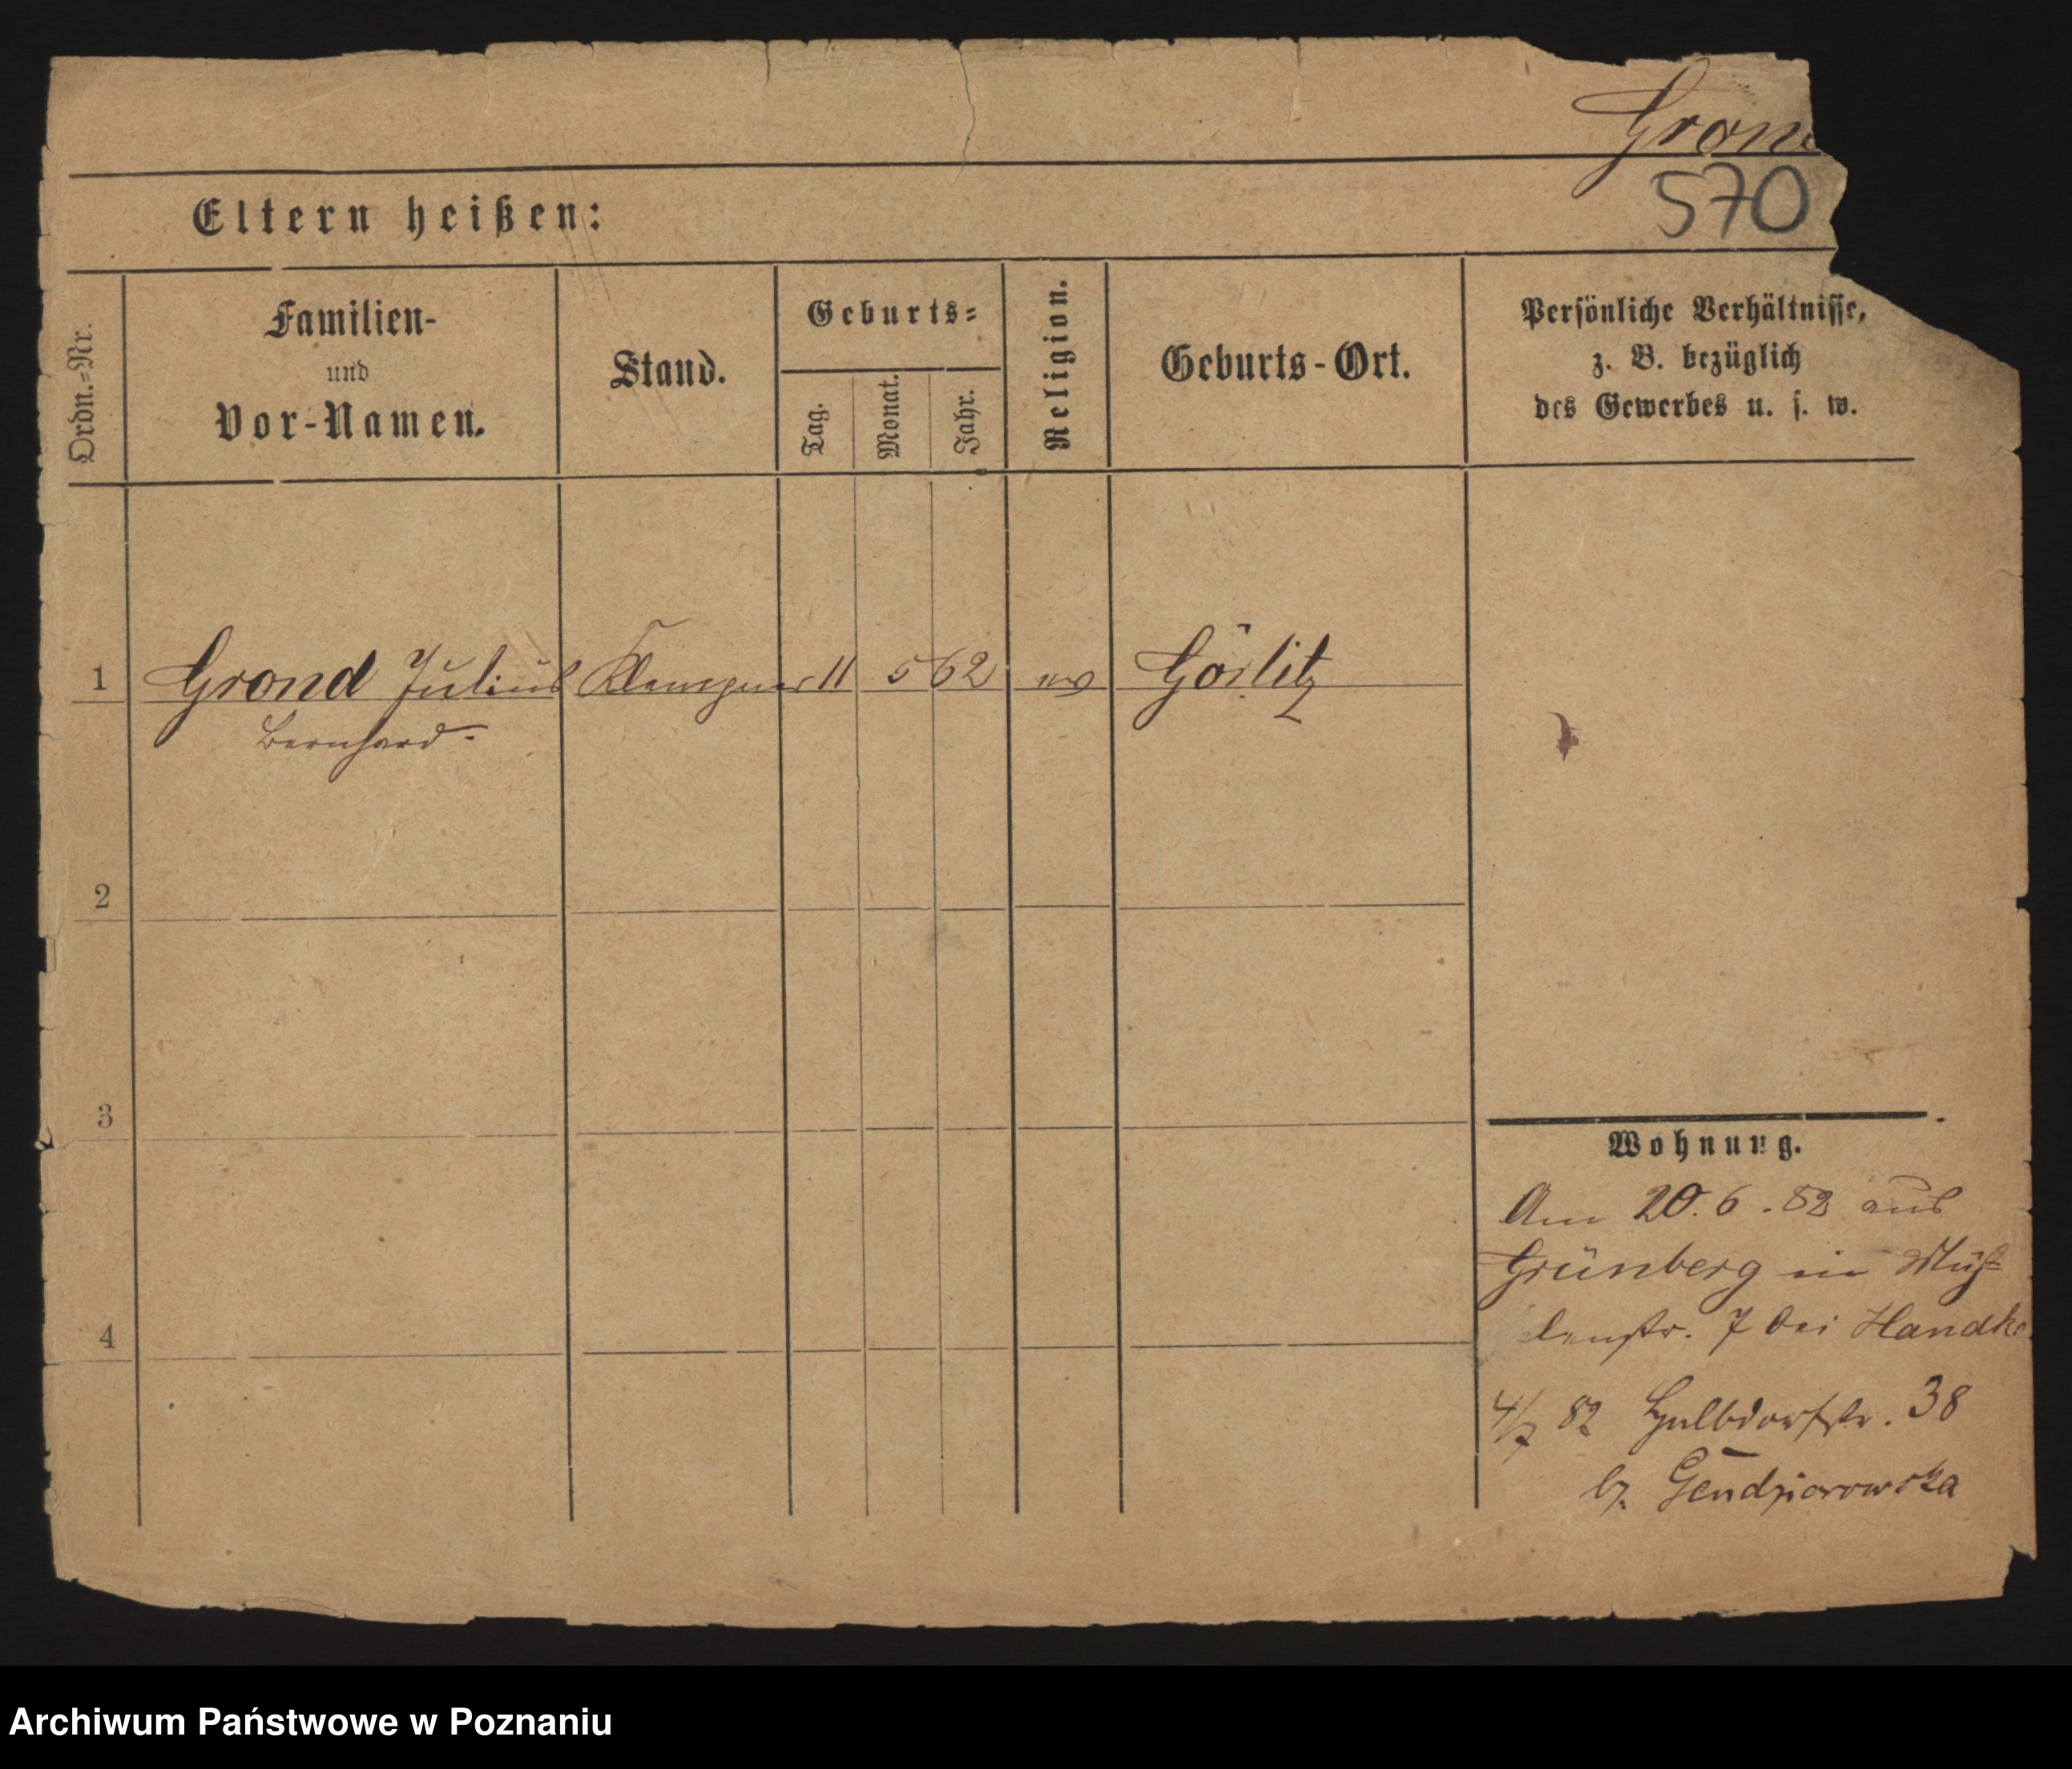 Gron
570
Eltern heißen:
Ordn.=Nr.
Familien-
und
Vor-Namen.
Stand.
Geburts=
Tag.
Monat.
Jahr.
Religion.
Geburts-Ort.
Persönliche Verhältnisse,
z. B. bezüglich
des Gewerbes u. s. w.
1 Grond Julius Klempner 11 5 62 ev Görlitz
Bernhard
2
3
4
Wohnung.
Am 20.6.82 aus
Grünberg in Müh=
lenstr. 7 bei Handke
4/7 82 Halbdorfstr. 38
b. Gendziorowska
Archiwum Państwowe w Poznaniu